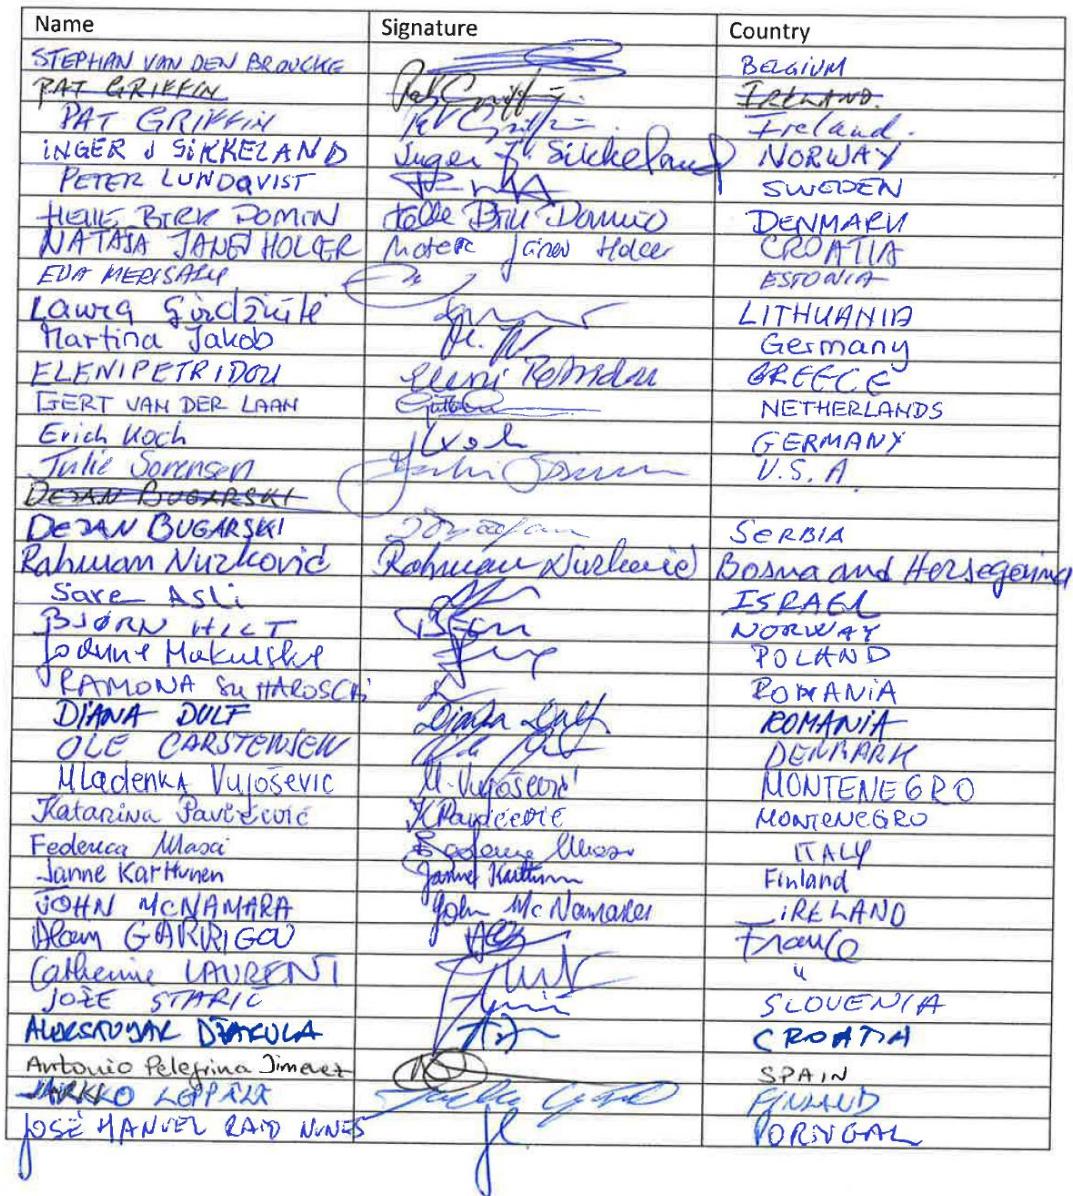 Name Signature Country
STEPHAN VAN DEN BROUCKE BELGIUM
PAT GRIFFIN Pat Griffin IRELAND.
PAT GRIFFIN Pat Griffin. Ireland.
INGER J SIKKELAND Inger J. Sikkeland NORWAY
PETER LUNDQVIST SWEDEN
HELLE BIRK DOMINO Helle Birk Domino DENMARK
NATAŠA JANEV HOLCER Nataša Janev Holcer CROATIA
EDA MERISALU ESTONIA
Laura Girdžiūtė LITHUANIA
Martina Jakob Germany
ELENI PETRIDOU Eleni Petridou GREECE
GERT VAN DER LAAN NETHERLANDS
Erich Koch Koch GERMANY
Julie Sorensen Julie Sorensen U.S.A.
DEJAN BUGARSKI
DEJAN BUGARSKI SERBIA
Rahman Nurković Rahman Nurković Bosna and Hersegovina
Sare Asli ISRAEL
BJØRN HILT NORWAY
POLAND
RAMONA SUHAROSCHI ROMANIA
DIANA DULF Diana Dulf ROMANIA
OLE CARSTENSEN DENMARK
Mladenka Vujošević M. Vujošević MONTENEGRO
Katarina Pavićević K Pavićević MONTENEGRO
Federica Masci Federica Masci ITALY
Janne Karttunen Janne Karttunen Finland
JOHN MCNAMARA John McNamara IRELAND
Alain GARRIGOU France
Catherine LAURENT "
JOŽE STARIČ SLOVENIA
ALEKSANDAR DŽAKULA CROATIA
Antonio Pelegrina Jimenez SPAIN
JARKKO LEPPÄLÄ FINLAND
JOSÉ MANUEL NUNES PORTUGAL